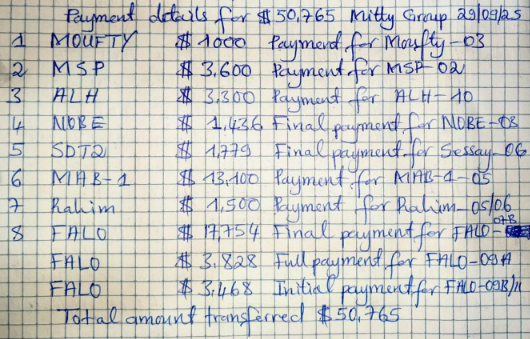 Payment details for $50,765 Mitty Group 29/09/25
1 MOUFTY $1000 Payment for Moufty-03
2 MSP $3,600 Payment for MSP-02
3 ALH $3,300 Payment for ALH-10
4 NOBE $1,436 Final payment for NOBE-08
5 SDT2 $1,779 Final payment for Sessay-06
6 MAB-1 $13,100 Payment for MAB-1-05
7 Rahim $1,500 Payment for Rahim-05/06
8 FALO $17,754 Final payment for FALO-07B
FALO $3,828 Full payment for FALO-09A
FALO $3,468 Initial payment for FALO-09B/11
Total amount transferred $50,765